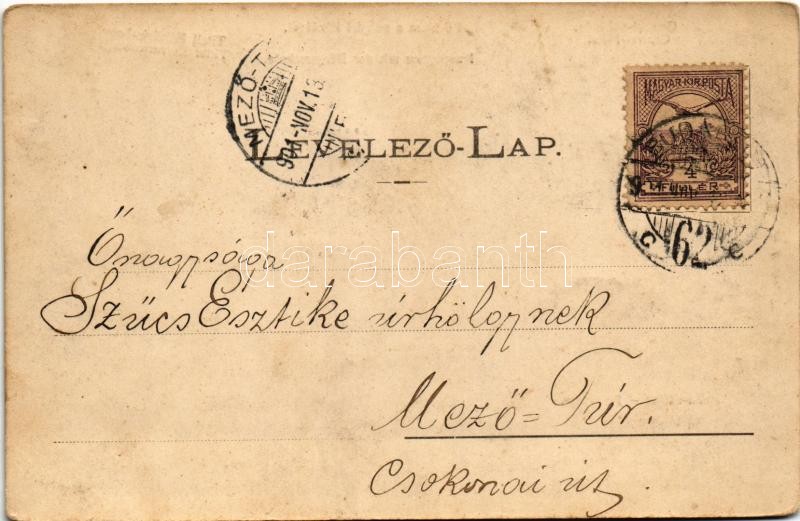 MEZŐ-T
904 NOV. 13
MAGYAR KIR. POSTA
LEVELEZŐ-LAP.
BUDA
4
62
Őnagysága
darabanth
Szűcs Esztike úrhölgynek
Mező=Túr.
Csokonai út